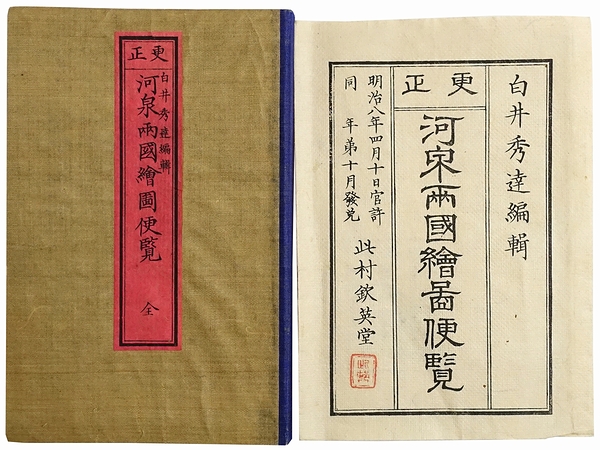 更正
白井秀達編輯
河泉兩國繪圖便覽
全
白井秀達編輯
更正
河泉兩國繪啚便覽
明治八年四月十日官許
同 年第十月發兌
此村欽英堂